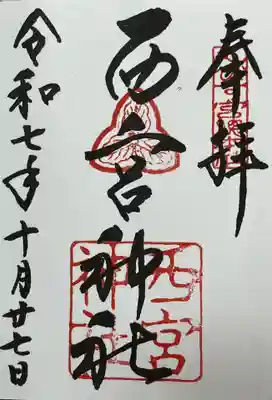 奉拝
西宮神社
令和七年十月廿七日
西宮
神社